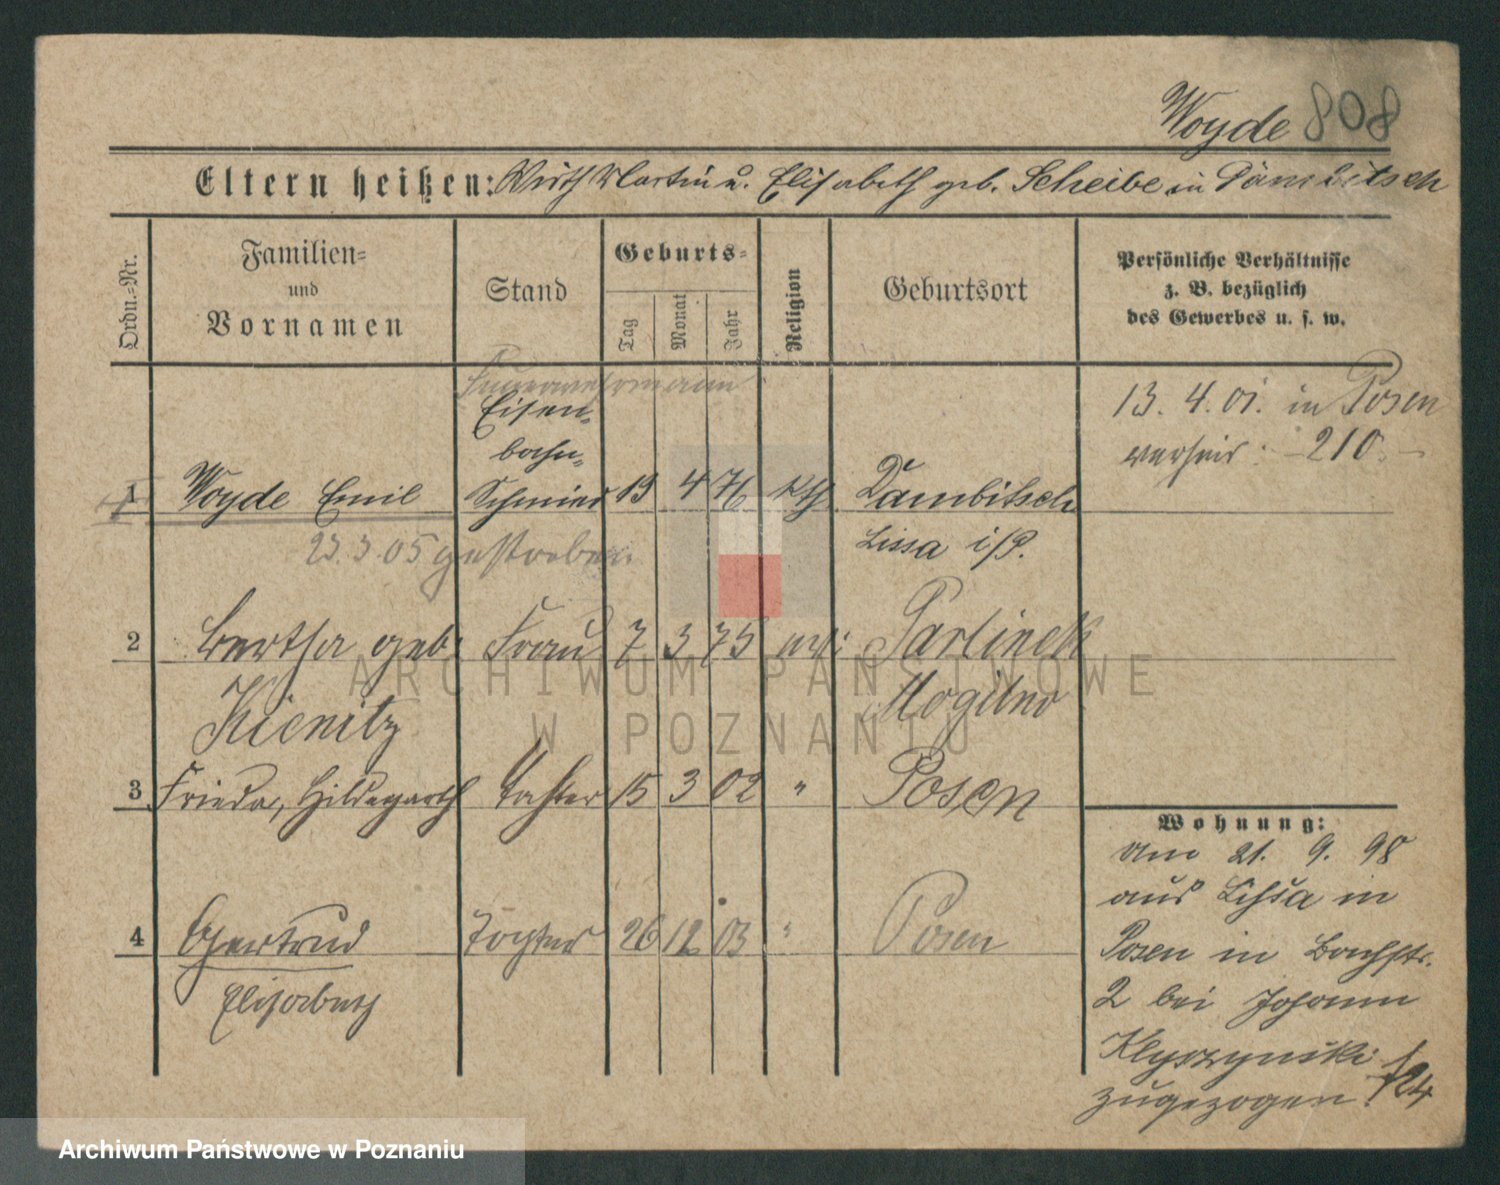 Woyde 808
Eltern heißen: Wirth Martin u. Elisabeth geb. Scheibe in Dambitsch
Ordn.-Nr.
Familien-
und
Vornamen
Stand
Geburts-
Tag
Monat
Jahr
Religion
Geburtsort
Persönliche Verhältnisse
z. B. bezüglich
des Gewerbes u. s. w.
Feuerwehrmann
Eisen-
bahn-
1 Woyde Emil Schmied 19 4 76 kth Dambitsch
23. 3. 05 gestorben Lissa i/P.
13. 4. 01. in Posen
verheir: -210.-
2 Bertha geb. Frau 7 3 75 Parlinek
Kienitz Mogilno
3 Frieda, Hildegarth Tochter 15 3 02 " Posen
4 Gertrud Tochter 26 12 03 " Posen
Elisabeth
Wohnung:
am 21. 9. 98
aus Lissa in
Posen in Bachstr.
2 bei Johann
Klyszynski
zugezogen. 124
ARCHIWUM PAŃSTWOWE
W POZNANIU
Archiwum Państwowe w Poznaniu